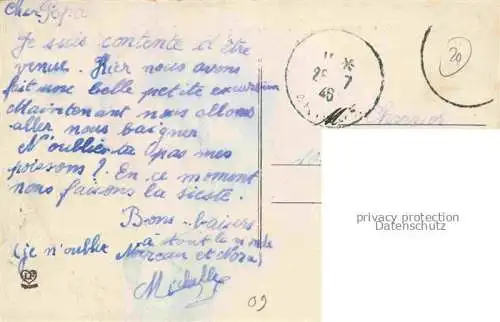 Cher Papa
Je suis contente d'être
venue. Hier nous avons
fait une belle petite excursion
Maintenant nous allons
aller nous baigner
N'oublie pas mes
poissons ? En ce moment
nous faisons la sieste.
Bons baisers
à tout le monde
(je n'oublie et Nora)
Michelle
09
20
7
46
privacy protection
Datenschutz